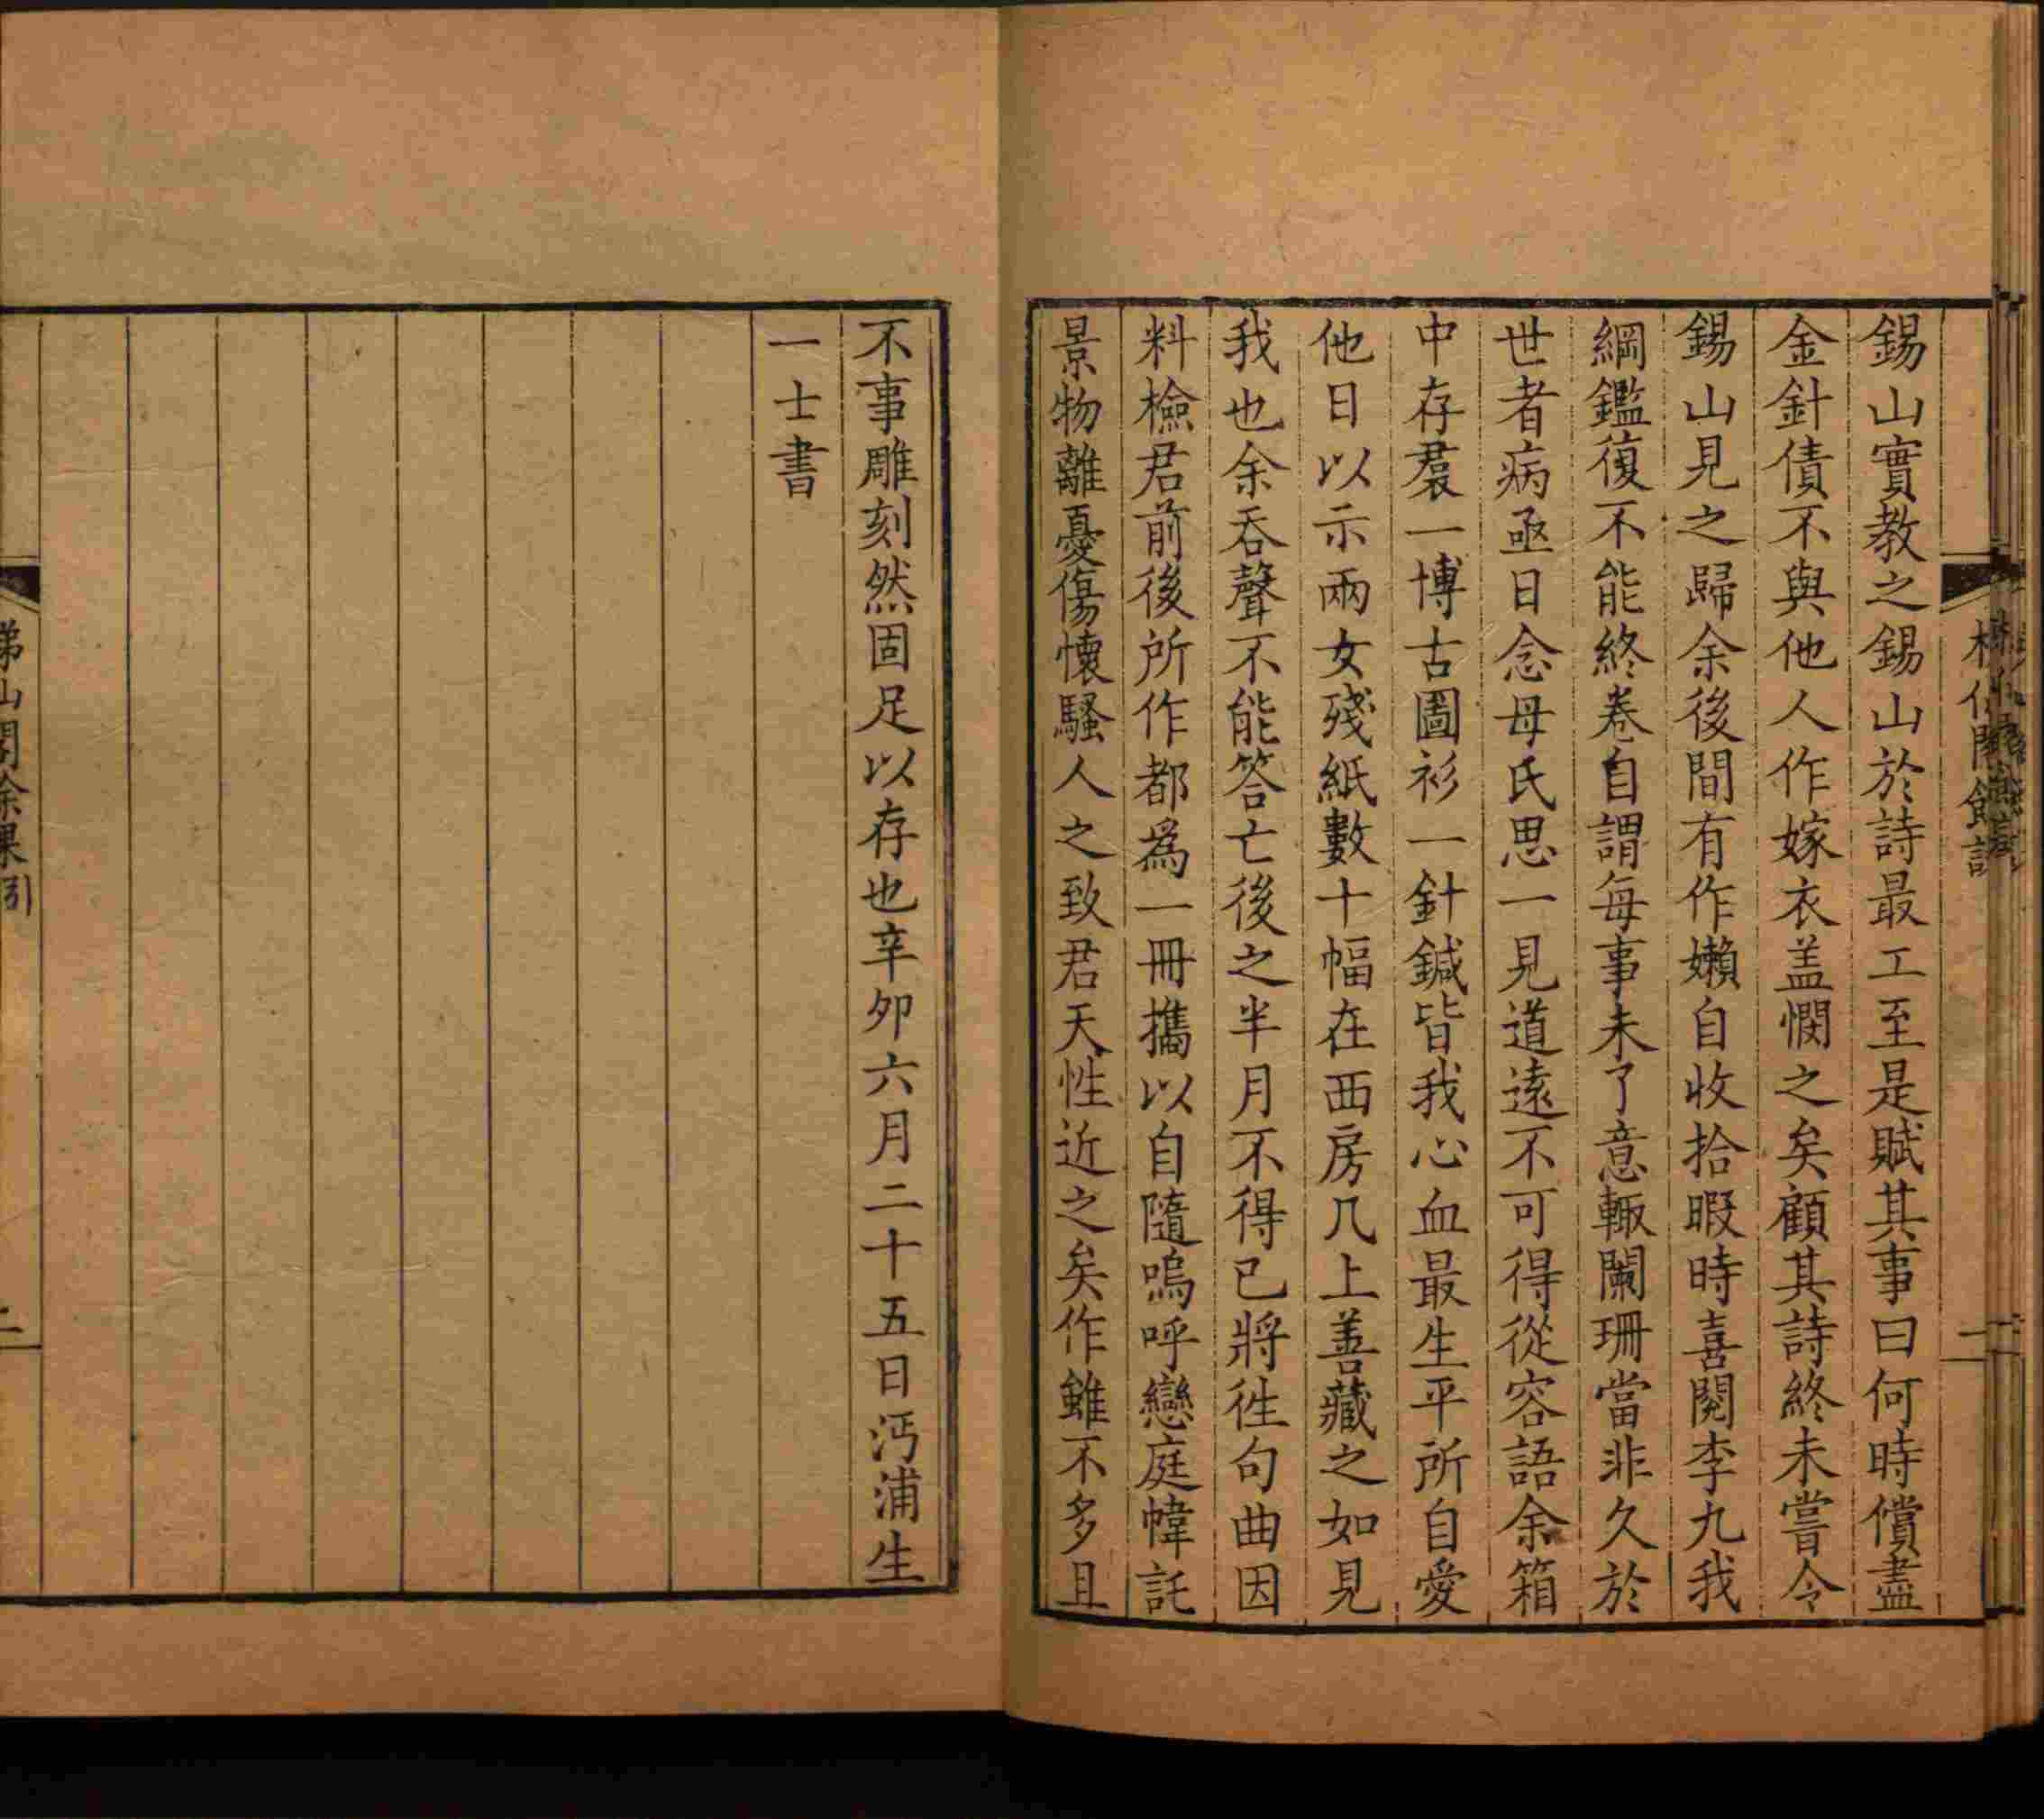 錫山實教之錫山於詩最工至是賦其事曰何時償盡
金針債不與他人作嫁衣盖憫之矣顧其詩終未嘗令
錫山見之歸余後間有作嬾自收拾暇時喜閱李九我
綱鑑復不能終卷自謂每事未了意輙闌珊當非久於
世者病亟日念母氏思一見道遠不可得從容語余箱
中存裠一博古圖衫一針鍼皆我心血最生平所自愛
他日以示兩女殘紙數十幅在西房几上善藏之如見
我也余吞聲不能答亡後之半月不得已將徃句曲因
料檢君前後所作都爲一冊攜以自隨嗚呼戀庭幃託
景物離憂傷懷騷人之致君天性近之矣作雖不多且
不事雕刻然固足以存也辛卯六月二十五日沔浦生
一士書
山閣余果引